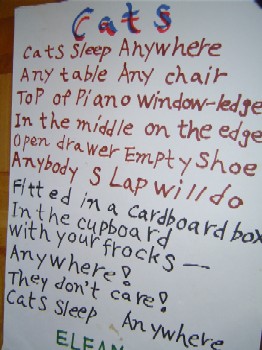 Cats
Cats Sleep Anywhere
Any table Any chair
Top of Piano window-ledge
In the middle on the edge
Open drawer Empty Shoe
Anybody s Lap will do
Fitted in a cardboard box
In the cupboard
with your frocks --
Anywhere!
They don't care!
Cats Sleep Anywhere